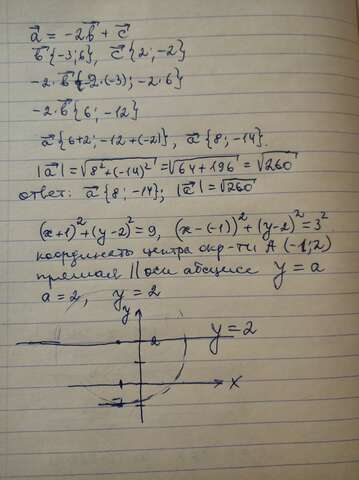 a⃗ = -2b⃗ + c⃗
b⃗ {-3; 6}, c⃗ {2; -2}
-2·b⃗ {-2·(-3); -2·6}
-2·b⃗ {6; -12}
a⃗ {6+2; -12+(-2)}, a⃗ {8; -14}.
|a⃗| = √(8²+(-14)²) = √(64+196) = √260
ответ: a⃗ {8; -14}; |a⃗| = √260
(x+1)²+(y-2)²=9, (x-(-1))²+(y-2)²=3²
координаты центра окр-ти A (-1; 2)
прямая || оси абсцисс y = a
a = 2, y = 2
y
y = 2
2
x